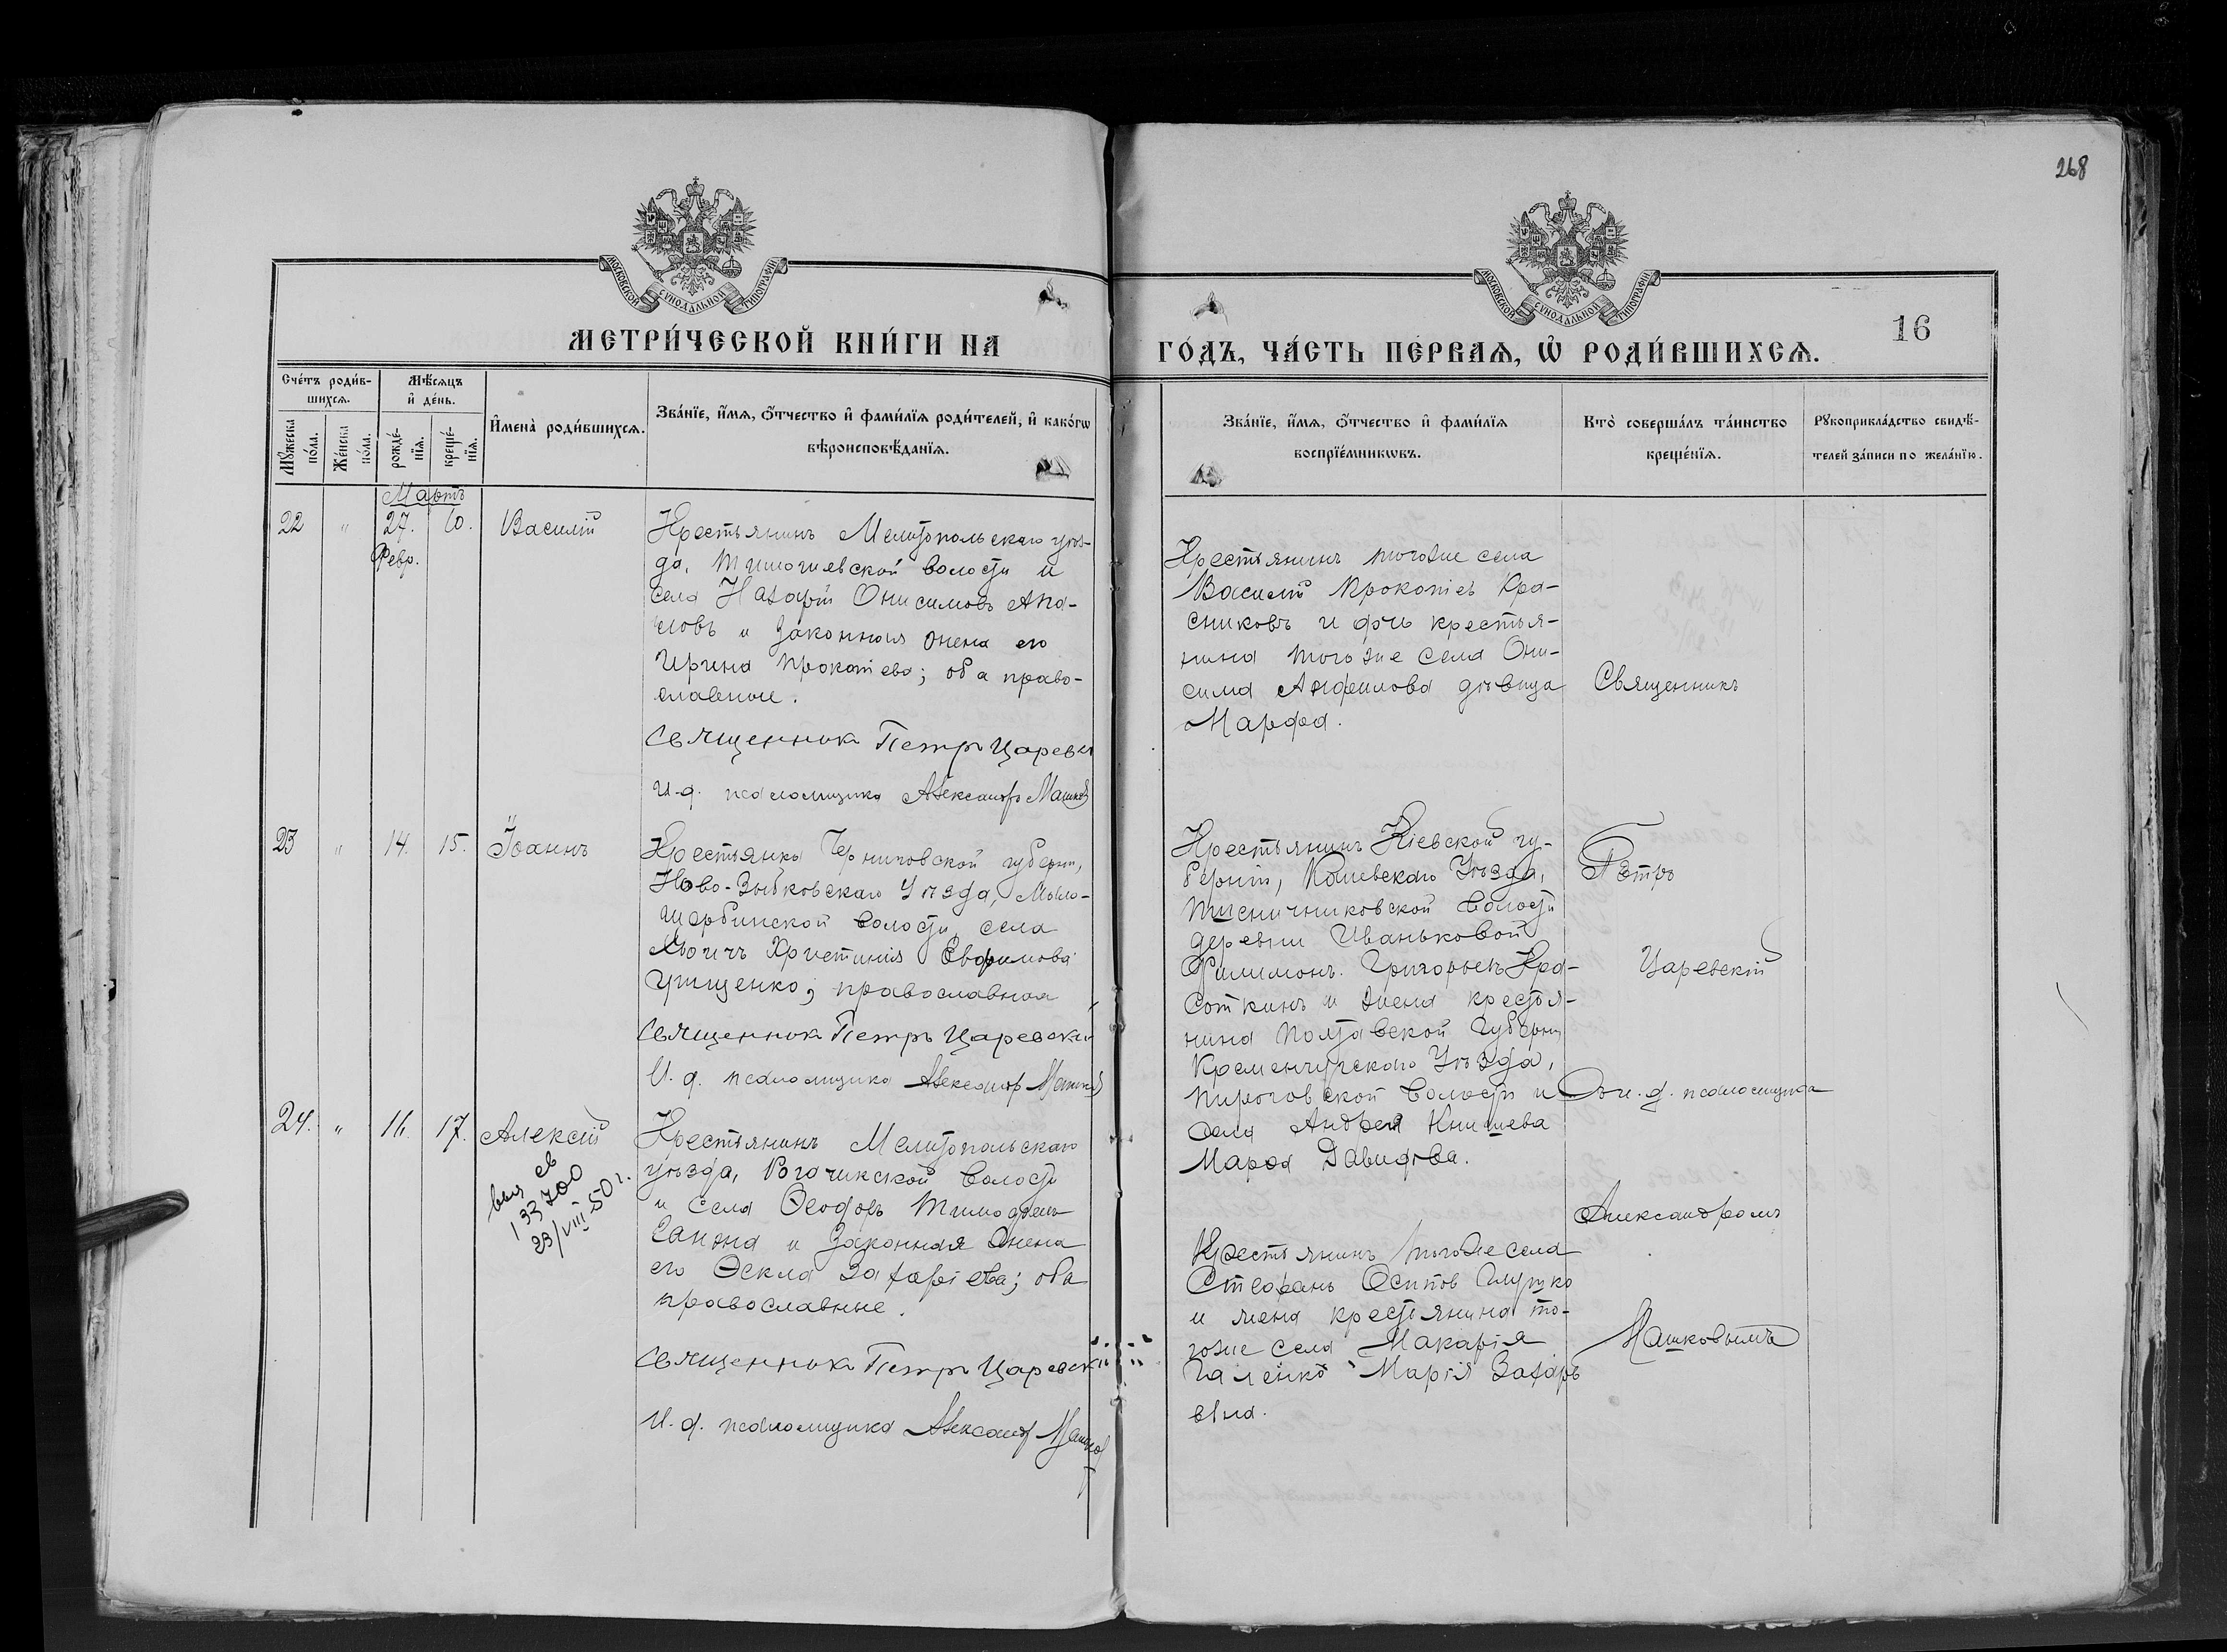 268
МОСКОВСКОЙ СУНОДАЛЬНОЙ ТИПОГРАФІИ
МОСКОВСКОЙ СУНОДАЛЬНОЙ ТИПОГРАФІИ
16
МЕТРИ́ЧЕСКОЙ КНИ́ГИ НА
ГО́ДЪ, ЧА́СТЬ ПЕ́РВАѦ, Ѡ҆ РОДИ́ВШИХСѦ.
Сче́тъ роди́в-
шихсѧ.
Мѣ́сѧцъ
и҆ де́нь.
Мꙋ́жеска
по́ла.
Же́нска
по́ла.
рожде́-
нїѧ.
креще́-
нїѧ.
И҆мена̀ роди́вшихсѧ.
Зва́нїе, и҆́мѧ, ѻ҆́тчество и҆ фами́лїѧ роди́телей, и҆ како́гѡ
вѣроисповѣ́данїѧ.
Зва́нїе, и҆́мѧ, ѻ҆́тчество и҆ фами́лїѧ
воспрїе́мникѡвъ.
Кто̀ соверша́лъ та́инство
креще́нїѧ.
Рꙋкоприкла́дство свидѣ́-
телей за́писи по жела́нїю.
Мартъ
22 " 27. 10. Василій
Февр.
Крестьянинъ Мелитопольскаго уѣз-
да, Тимошевской волости и
села Назарій Онисимовъ Апа-
совъ и законная жена его
Ирина Прокопіева; оба право-
славные.
Священник Петр Царевск
И. д. псаломщика Александръ Машков
Крестьянинъ того же села
Василій Прокопіевъ Кра-
сниковъ и дочь крестья-
нина того же села Они-
сима Анфилова дѣвица
Марфа.
Священникъ
23 " 14. 15. Іоаннъ
Крестьянка Черниговской губерніи,
Ново-Зыбковскаго Уѣзда, Мало-
щербинской волости, села
Христинія Евфимова
Грищенко, православная
Священник Петръ Царевскій
И. д. псаломщика Александр Машков
Крестьянинъ Кіевской гу-
берніи, Уѣзда,
Пшеничниковской волости
деревни Иваньковой
Филимонъ Григорьевъ Кра-
соткинъ и жена крестья-
нина Полтавской Губерніи
Кременчугскаго Уѣзда,
Пироговской волости и
села Андрея Книшева
Марѳа Давидова.
Петръ
Царевскій
съ и. д. псаломщика
Александромъ
Машковымъ
24. " 16. 17. Алексій
св
133700
23/VIII 50 г.
Крестьянинъ Мелитопольскаго
уѣзда, Рогачикской волости
и села Ѳеодоръ Тимоѳеевъ
Сапона и законная жена
его Ѳекла Захаріева; оба
православные.
Священник Петр Царевскій
И. д. псаломщика Александр Машков
Крестьянинъ того же села
Стефанъ Осипов
и жена крестьянина то-
гоже села Макарія
Галенко Марія Захарь
евна.